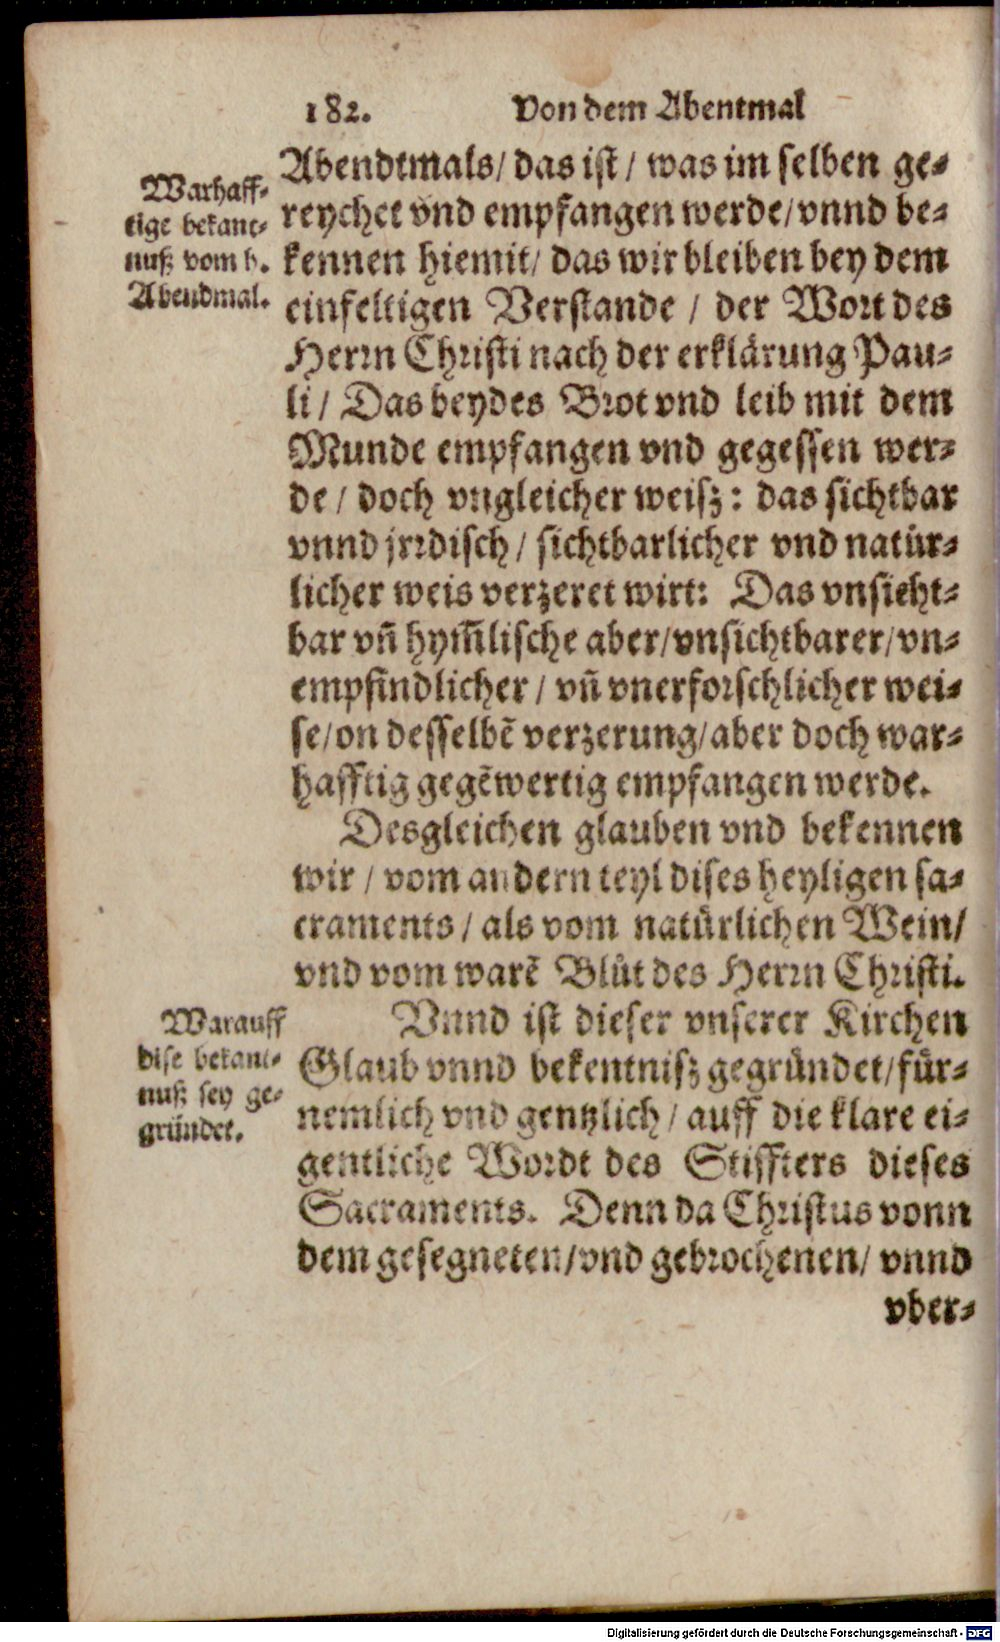 182. Von dem Abentmal
Abendtmals/ das ist / was im selben ge⸗
reychet vnd empfangen werde/ vnnd be⸗
kennen hiemit/ das wir bleiben bey dem
einfeltigen Verstande / der Wort des
Herrn Christi nach der erklärung Pau⸗
li / Das beydes Brot vnd leib mit dem
Munde empfangen vnd gegessen wer⸗
de / doch vngleicher weisz: das sichtbar
vnnd jrrdisch / sichtbarlicher vnd natür⸗
licher weis verzeret wirt: Das vnsieht⸗
bar vn̄ hym̄lische aber/ vnsichtbarer/ vn⸗
empfindlicher / vn̄ vnerforschlicher wei⸗
se/ on desselbē verzerung/ aber doch war⸗
hafftig gegēwertig empfangen werde.
Desgleichen glauben vnd bekennen
wir / vom andern teyl dises heyligen sa⸗
craments / als vom natürlichen Wein/
vnd vom warē Blůt des Herrn Christi.
Vnnd ist dieser vnserer Kirchen
Glaub vnnd bekentnisz gegründet/ für⸗
nemlich vnd gentzlich / auff die klare ei⸗
gentliche Wordt des Stiffters dieses
Sacraments. Denn da Christus vonn
dem gesegneten/ vnd gebrochenen/ vnnd
vber⸗
Warhaff⸗
tige bekant⸗
nuß vom h.
Abendmal.
Warauff
dise bekant⸗
nuß sey ge⸗
gründet.
Digitalisierung gefördert durch die Deutsche Forschungsgemeinschaft - DFG